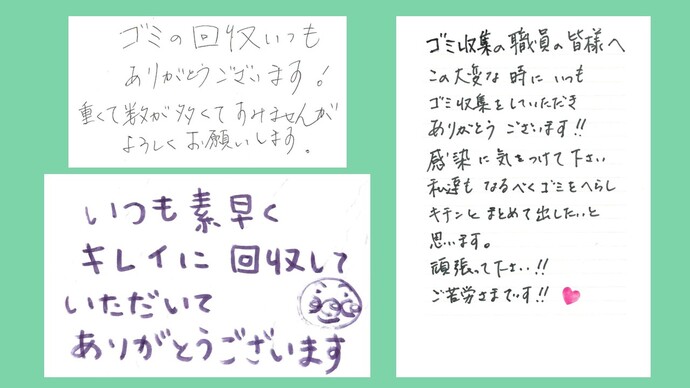 ゴミの回収いつも
ありがとうございます!
重くて数が多くてすみませんが
よろしくお願いします。
いつも素早く
キレイに回収して
いただいて
ありがとうございます
ゴミ収集の職員の皆様へ
この大変な時にいつも
ゴミ収集をしいただき
ありがとうございます!!
感染に気をつけて下さい
私達もなるべくゴミをへらし
キチンとまとめて出したいと
思います。
頑張って下さい!!
ご苦労さまです!!